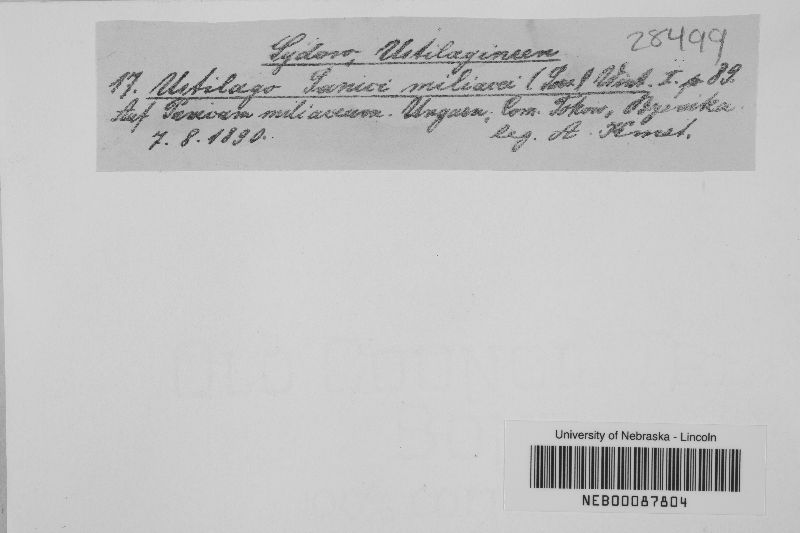 28499
Sydow, Ustilagineen
17. Ustilago Panici miliacei (Pers.) Wint. I. p. 89.
Auf Panicum miliaceum. Ungarn, Com.
7. 8. 1890. leg. A. Kmet.
University of Nebraska - Lincoln
NEB00087804